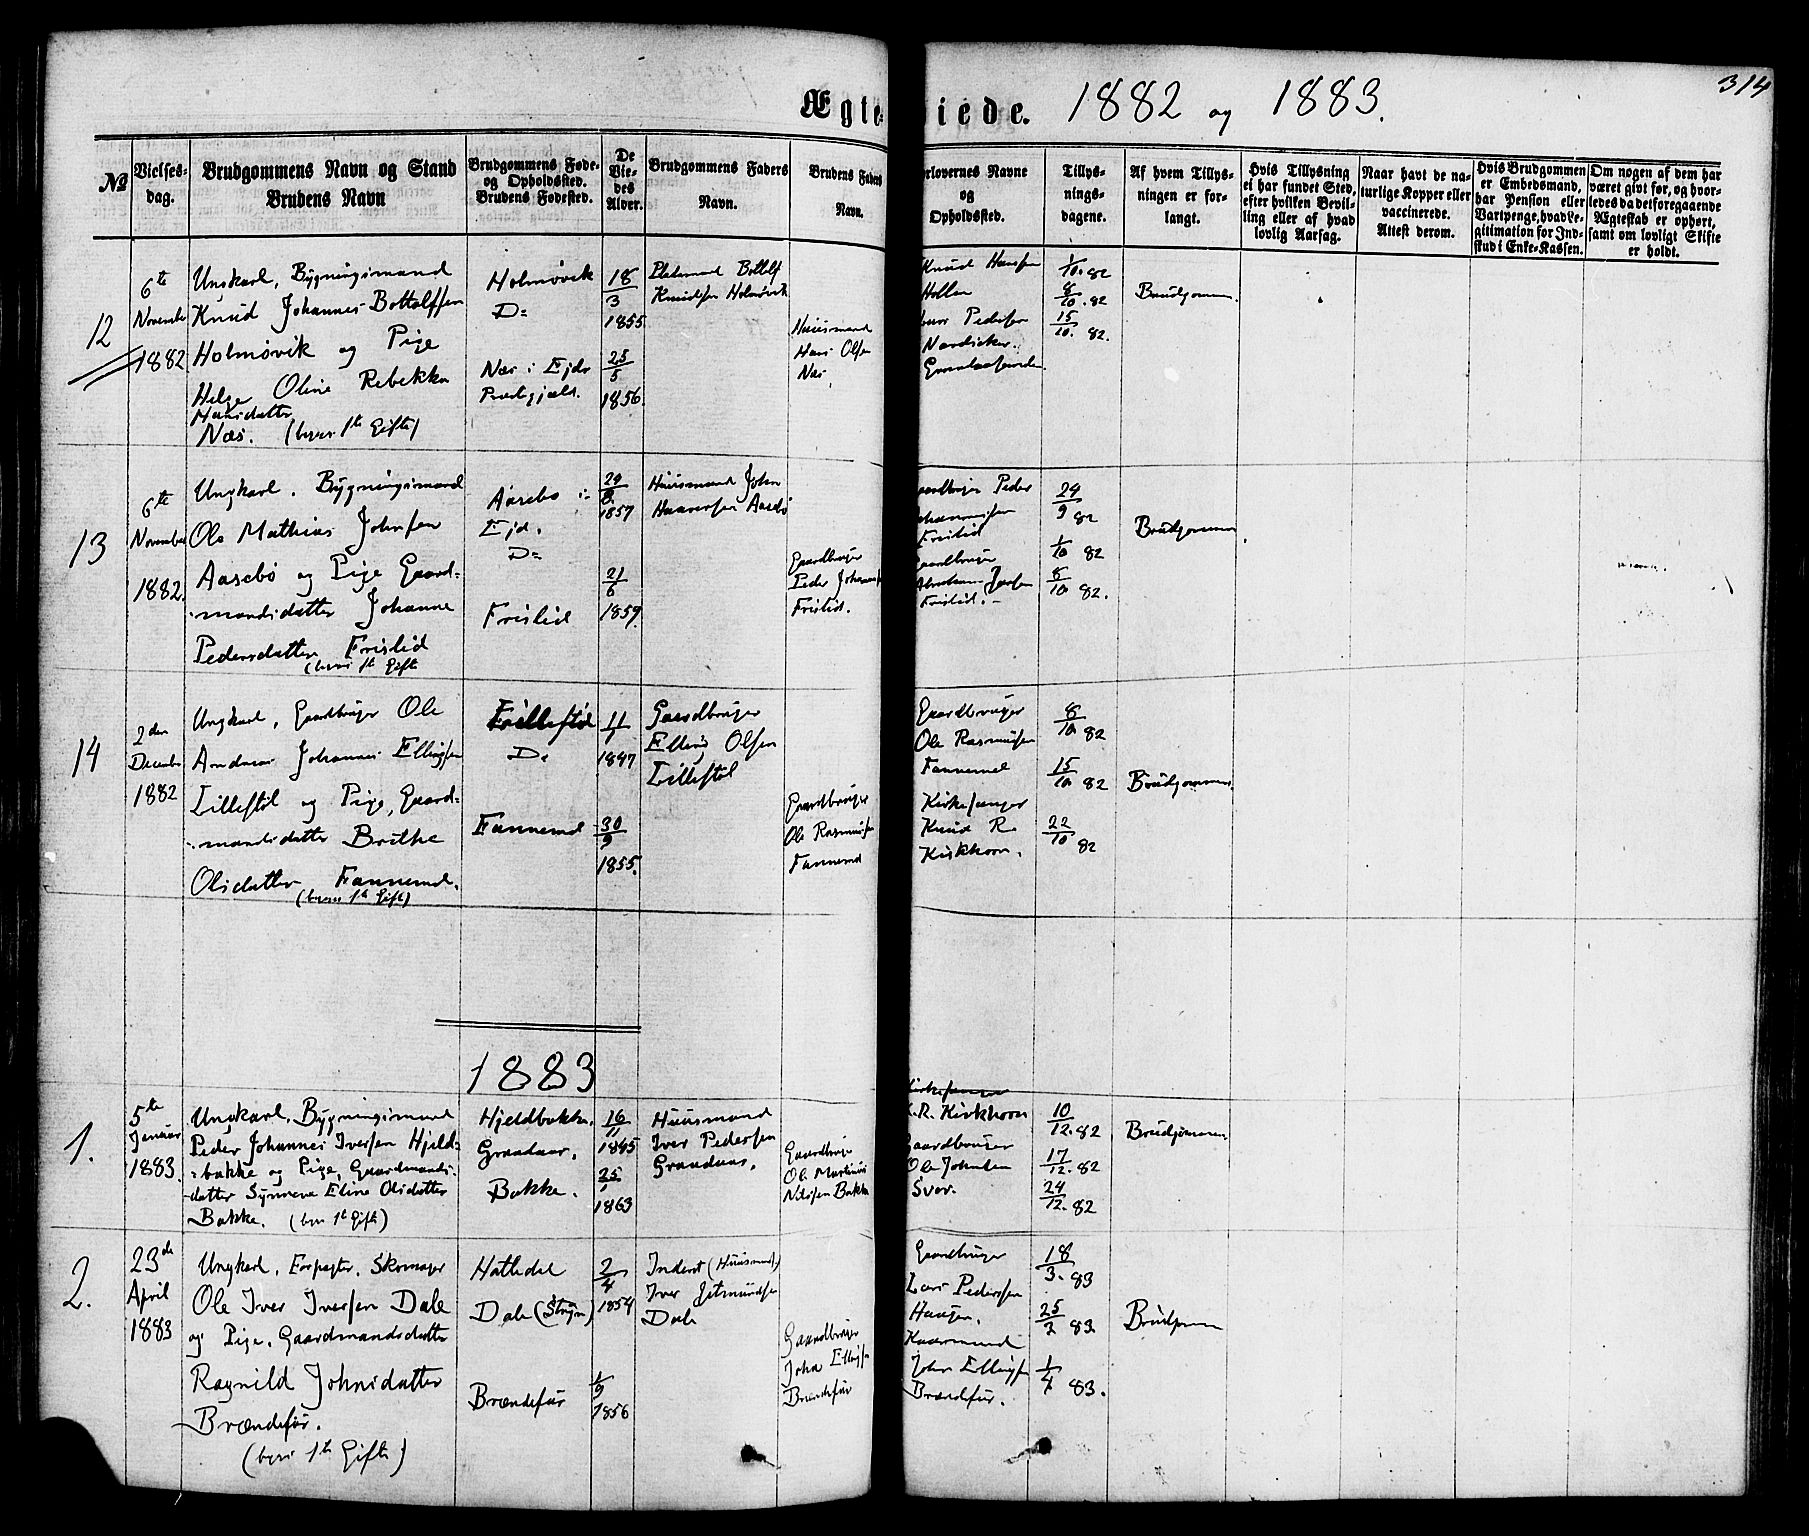 Ægte- viede. 1882 og 1883.
314
No
Vielses-
dag.
Brudgommens Navn og Stand
Brudens Navn
Brudgommens Føde-
og Opholdssted.
Brudens Fødested.
De
Vie-
des
Alder.
Brudgommens Faders
Navn.
Brudens Faders
Navn.
orlovernes Navne
og
Opholdssted.
Tillys-
nings-
dagene.
Af hvem Tillys-
ningen er for-
langt.
Hvis Tillysning
ei har fundet Sted,
efter hvilken Bevil-
ling eller af hvad
lovlig Aarsag.
Naar havt de na-
turlige Kopper eller
vaccinerede.
Attest derom.
Hvis Brudgommen
er Embedsmand,
har Pension eller
Vartpenge, hvad Le-
gitimation for Ind-
skud i Enke-Kassen.
Om nogen af dem har
været gift før, og hvor-
ledes da det foregaaende
Ægteskab er ophørt,
samt om lovligt Skifte
er holdt.
12
6te
November
1882
Ungkarl, Bygningsmand
Knud Johannes Bottolfsen
Holmøvik og Pige
Helge Oline Rebekka
Hansdatter
Næs. (begge 1te Gifte)
Holmøvik
D=
Næs i Ejds
Præstgjæld.
18/3
1855
25/5
1856.
Pladsmand Bottolf
Knudsen Holmøvik
Huusmand
Hans Olsen
Næs
Knud Hansen
Hollen
Pedersen
1/10. 82
8/10. 82
15/10. 82.
Brudgommen.
13
6te
November
1882.
Ungkarl. Bygningsmand
Ole Mathias Johnsen
Aasebø og Pige Gaard-
mandsdatter Johanne
Pedersdatter Frislid
(begge 1te Gifte
Aasebø i
Ejd.
D=
Frislid
29/8.
1857
21/6
1859.
Huusmand John
Aasebø
Gaardbruger
Peder Johannesen
Frislid.
aardbruger Peder
ohannesen
Frislid
aardbruger
Frislid.
24/9 82
1/10 82
8/10 82.
Brudgommen
14
2den
December
1882
Ungkarl, Gaardbruger Ole
Andreas Johannes Ellingsen
Lillestøl og Pige, Gaard-
mandsdatter Brithe
Olsdatter Fannemel.
(begge 1te Gifte)
Lillestøl
D=
Fannemel
11/1
1847
30/9
1855.
Gaardbruger
Elling Olsen
Lillestøl
Gaardbruger
Ole Rasmusen
Fannemel
Gaardbruger
Ole Rasmusen
Fannemel
Kirkesanger
Knud R.
Kirkhorn.
8/10 82
15/10 82
22/10 82
Brudgommen.
1883
1.
5te
Januar
1883.
Ungkarl. Bygningsmand
Peder Johannes Iversen Hjeld-
bakke og Pige, Gaardmands-
datter Synneve Eline Olsdatter
Bakke. (begge 1te Gifte)
Hjeldbakke.
Grandaas.
Bakke.
16/11
25/1
1863
Huusmand
Iver Pedersen
Grandaas.
Gaardbruger
Ole Martinus
Nilssen Bakke
Kirkesanger
K.R. Kirkhorn
aardbruger
Ole Johnsen
Svor.
10/12. 82
17/12. 82
24/12. 82
Brudgommen
2.
23de
April
1883
Ungkarl, Forpagter, Skomager
Ole Iver Iversen Dale
og Pige. Gaardmandsdatter
Ragnild Johnsdatter
Brændefur.
(begge 1te Gifte)
Hatledal
Dale (Stryn)
Brændefur
2/4
1854
1/9
1856
Inderst (Huusmand)
Iver Jetmundsen
Dale
Gaardbruger
John Ellingsen
Brændefur
Gaardbruger
Lars Pedersen
Haugen.
Kaarmand
John Ellingsen
Brændefur.
18/3. 83
25/3 83.
1/4 83.
Brudgommen